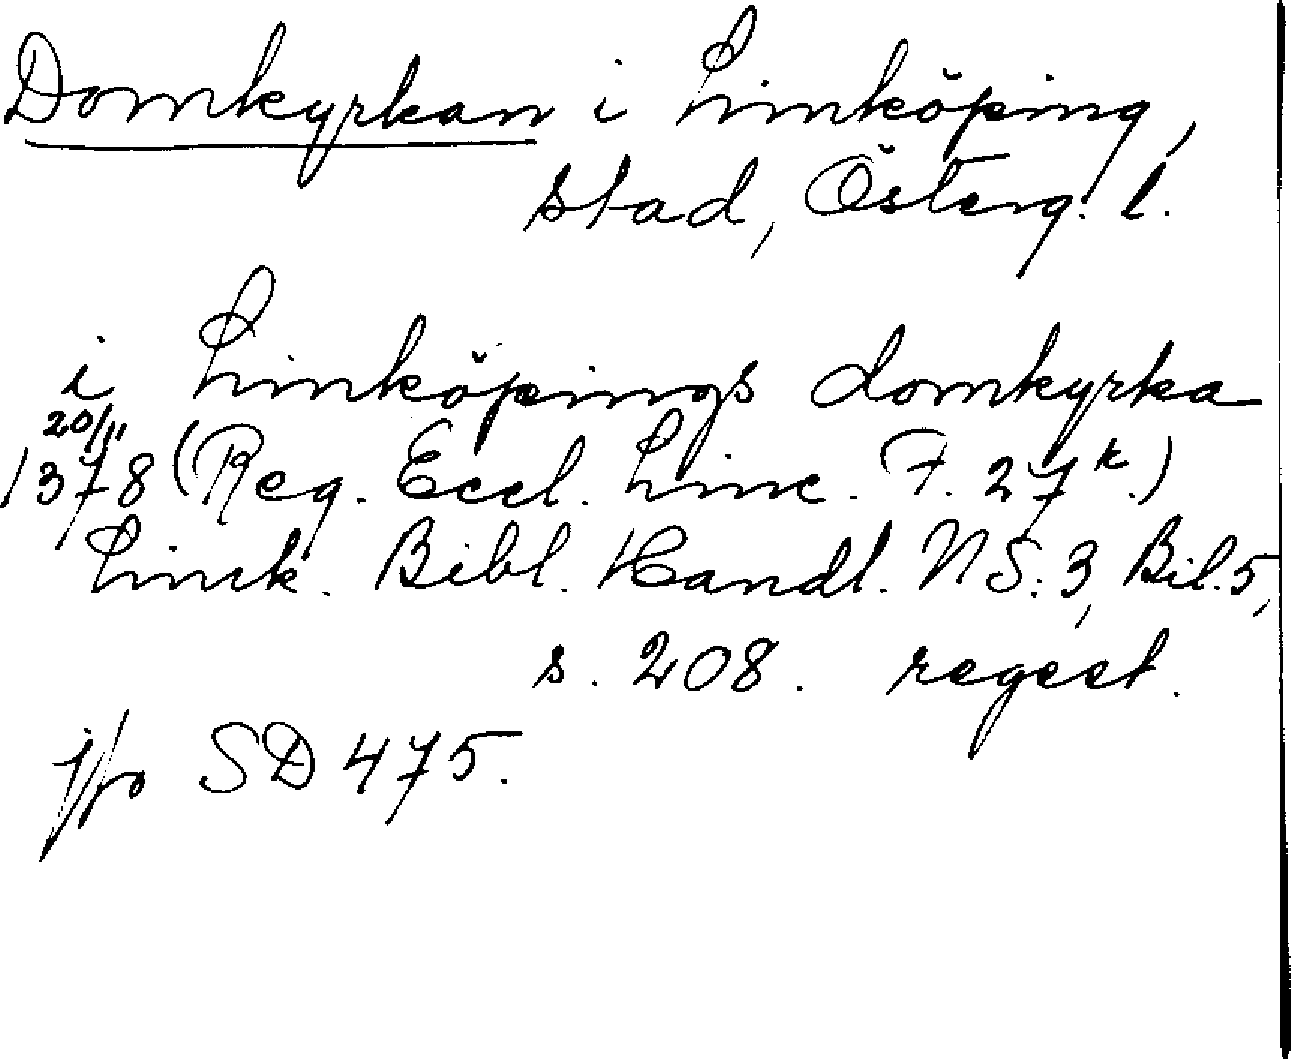 Domkyrkan i Linköping,
stad, Österg. l.
i Linköpings domkyrka
20/11
1378 (Reg. Eccl. Linc. F. 27 r.)
Linck. Bibl. Handl. NS. 3, Bil. 5,
s. 208. regest.
jfo SD 475.